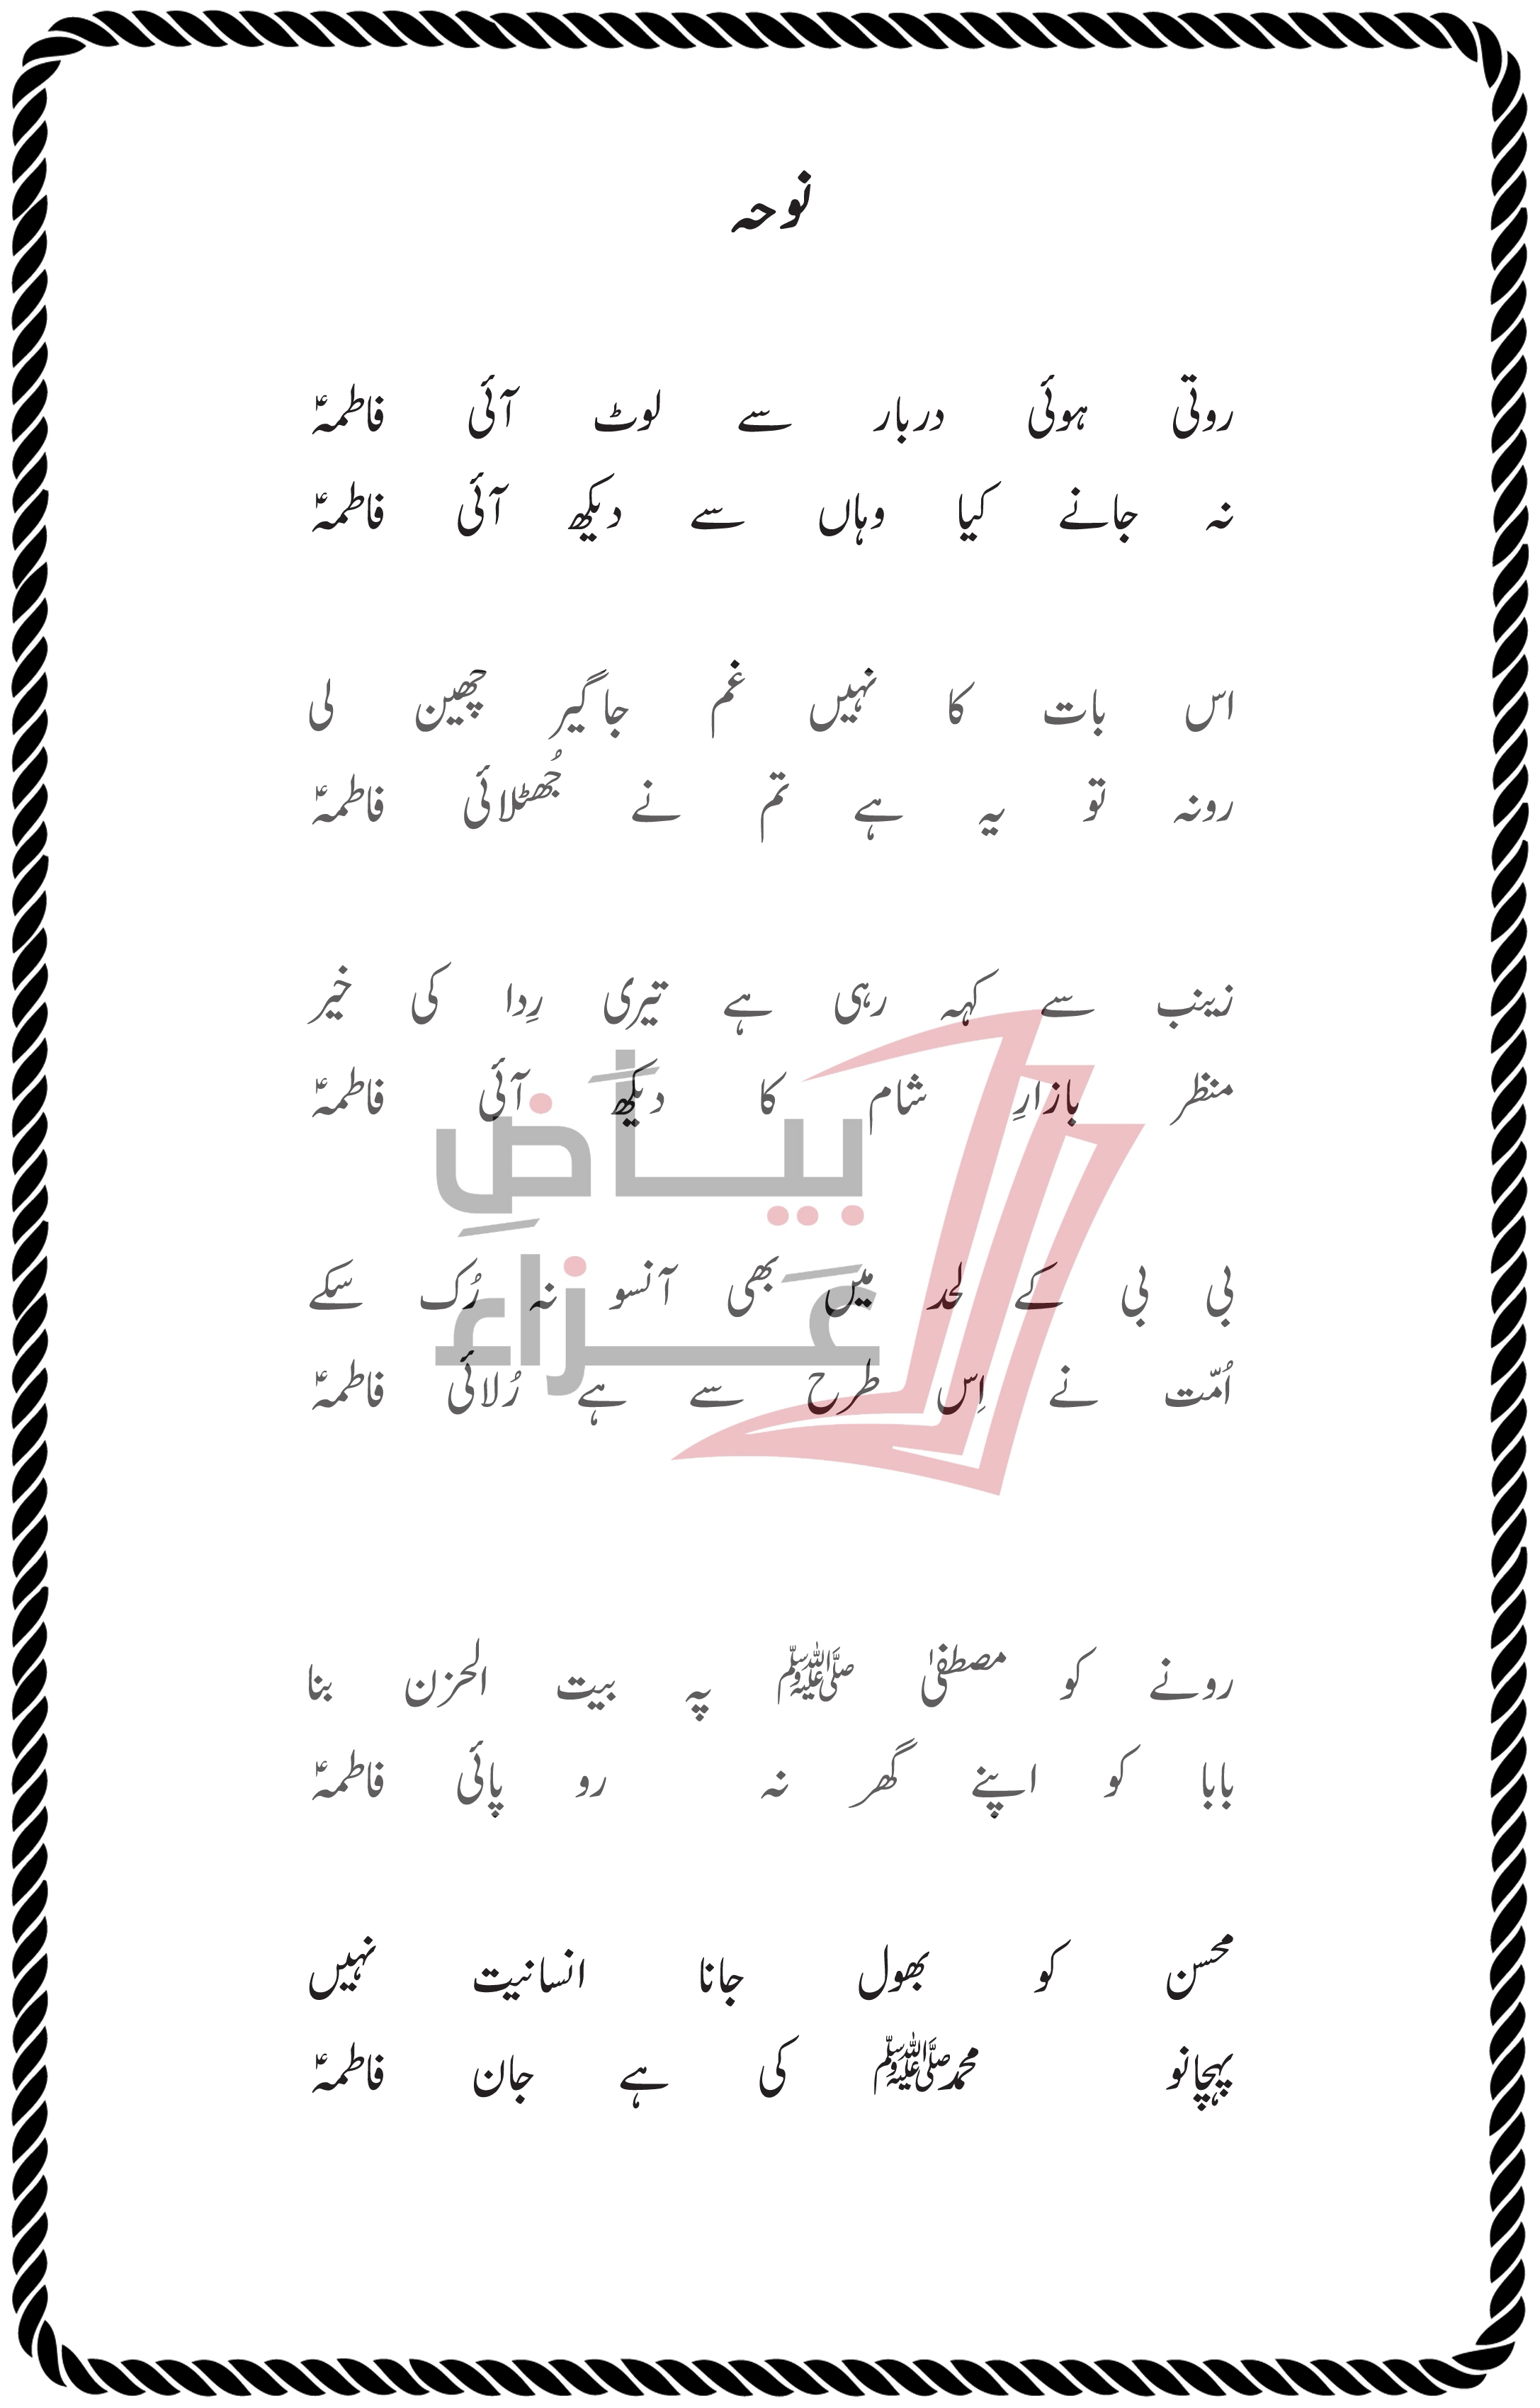 نوحہ
روتی ہوئی دربار سے لوٹ آئی فاطمہؑ
نہ جانے کیا وہاں سے دیکھ آئی فاطمہؑ
اس بات کا نہیں غم جاگیر چھین لی
رونہ تو یہ ہے تم نے جُھٹلائی فاطمہؑ
زینب سے کہہ رہی ہے تیری رِدا کی خیر
منظر بازارِ شام کا دیکھ آئی فاطمہؑ
بی بی کے لحد میں بھی آنسو نہ رُک سکے
اُمّت نے اِس طرح سے ہے رُلائی فاطمہؑ
رونے کو مصطفیٰ ﷺ پہ بیت الحزن بنا
بابا کو اپنے گھر نہ رو پائی فاطمہؑ
محسن کو بھول جانا انسانیت نہیں
پہچانو محمدﷺ کی ہے جان فاطمہؑ
بیاضِ
عَزاء